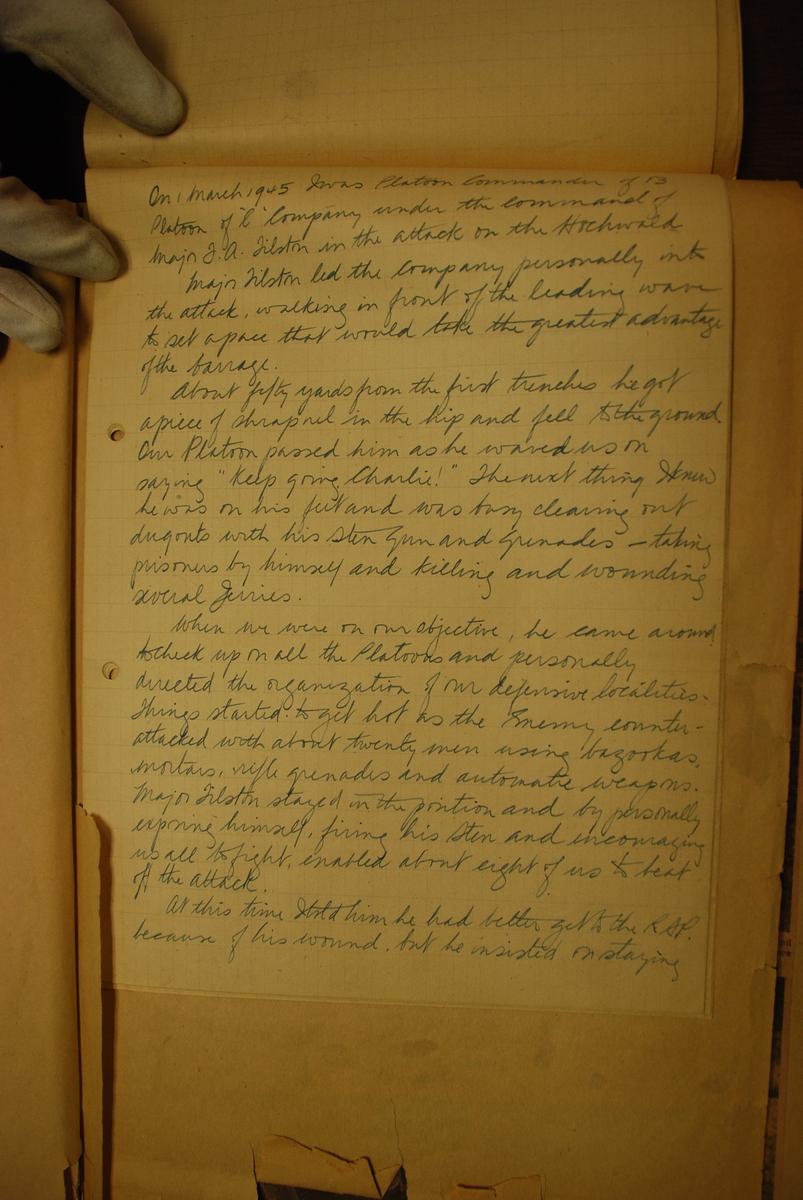 On 1 March 1945 I was Platoon Commander of 13
Platoon of "C" Company under the command of
Major F.A. Tilston in the attack on the Hochwald
Major Tilston led the Company personally into
the attack, walking in front of the leading wave
to set a pace that would take the greatest advantage
of the barrage.
About fifty yards from the first trenches he got
a piece of shrapnel in the hip and fell to the ground.
Our Platoon passed him as he waved us on
saying "Keep going Charlie!" The next thing I knew
he was on his feet and was busy clearing out
dugouts with his Sten Gun and grenades – taking
prisoners by himself and killing and wounding
several Jerries.
When we were on our objective, he came around
to check up on all the Platoons and personally
directed the organization of our defensive localities.
Things started to get hot as the Enemy counter-
attacked with about twenty men using bazookas,
mortars, rifle grenades and automatic weapons.
Major Tilston stayed in the position and by personally
exposing himself, firing his Sten and encouraging
us all to fight, enabled about eight of us to beat
off the attack.
At this time I told him he had better get to the R.A.P.
because of his wound, but he insisted on staying